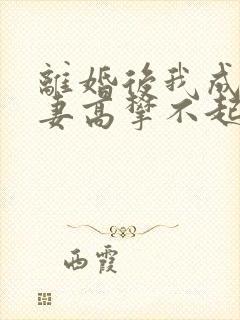 離婚後我成
妻高攀不起
西霞